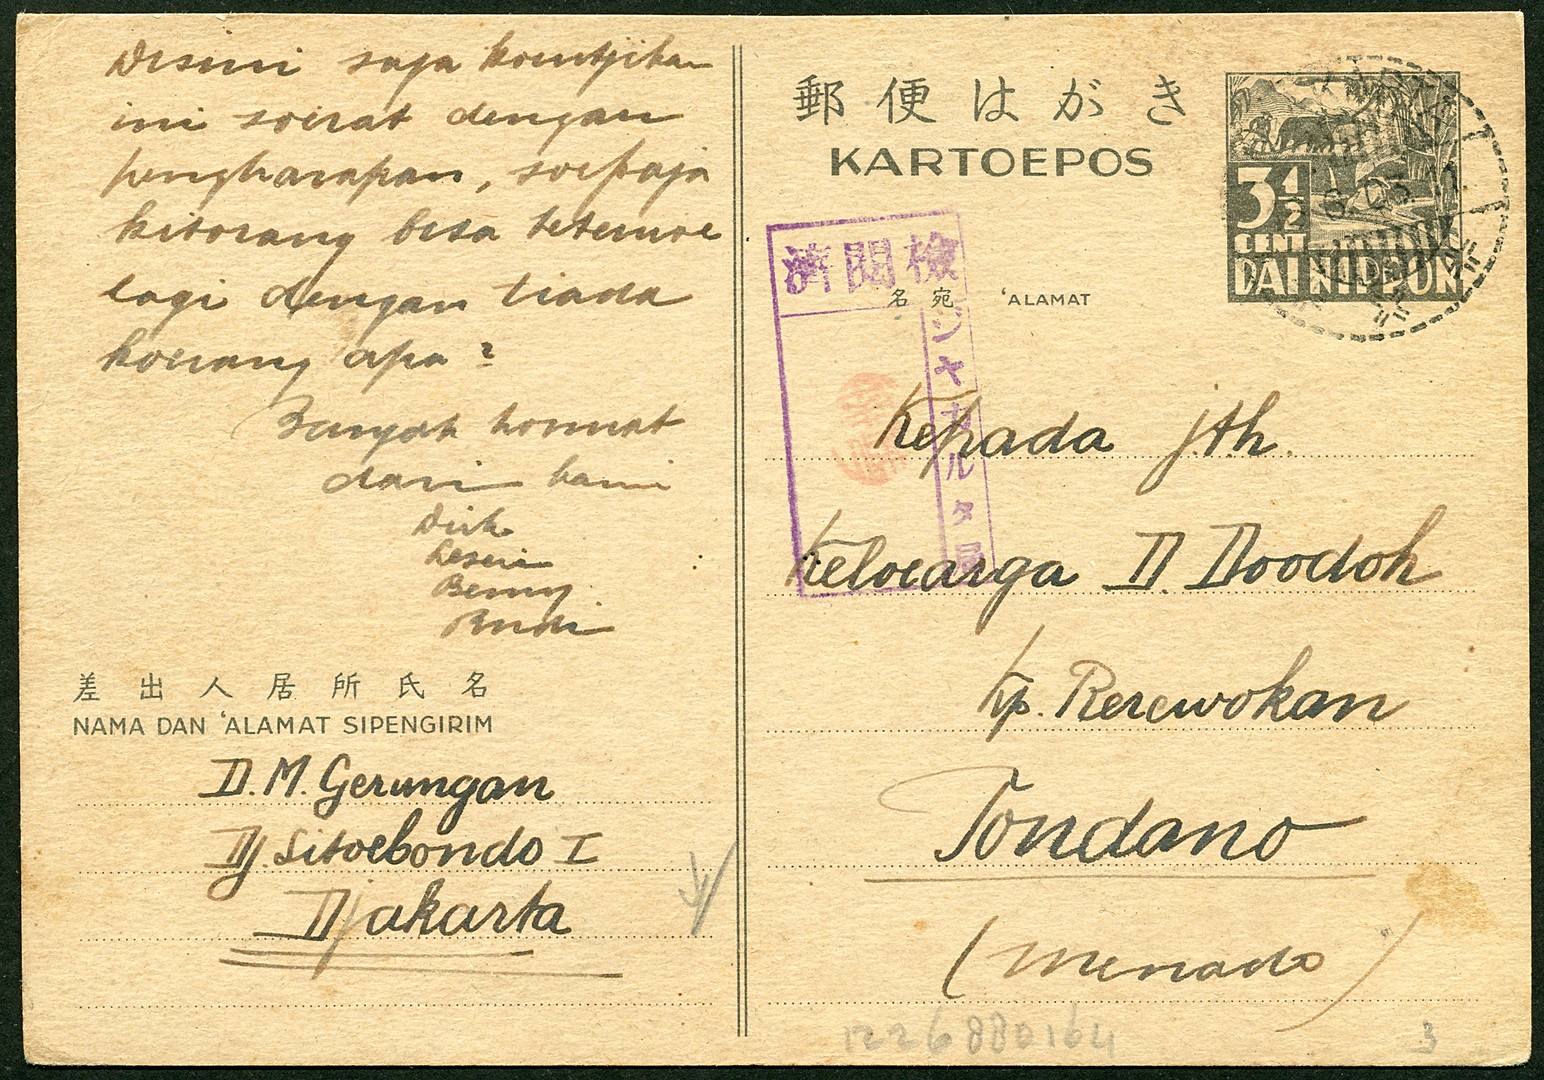 Disini saja koentjikan
ini soerat dengan
pengharapan, soepaja
kitorang bisa tetemoe
lagi dengan tiada
koerang apa?
Banjak hormat
dari kami
Dirk
Benny
Rudi
差出人居所氏名
NAMA DAN 'ALAMAT SIPENGIRIM
D. M. Gerungan
Dj Sitoebondo I
Djakarta
郵便はがき
KARTOEPOS
3½
CENT
DAI NIPPON
濟閲檢
ジヤカルタ局
名宛 'ALAMAT
Kepada jth.
Keloearga D. Doodoh
Kp. Rerewokan
Tondano
(Menado)
1226880164
3